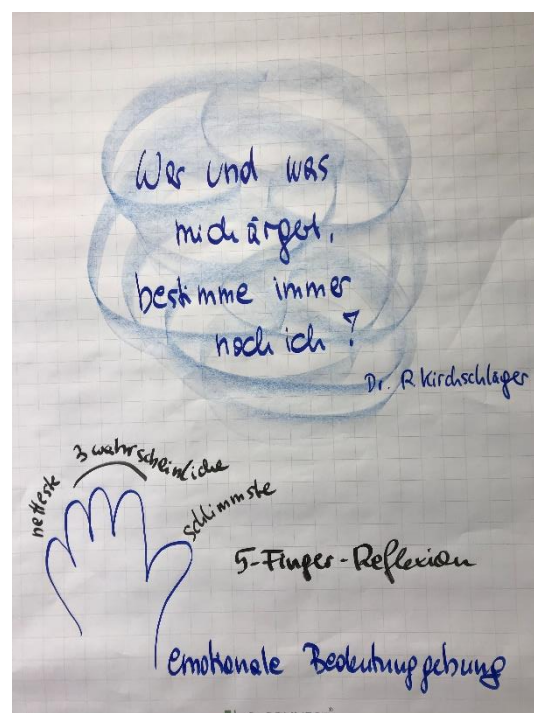 Wer und was
mich ärgert,
bestimme immer
noch ich ?
Dr. R Kirchschläger
netteste
3 wahrscheinliche
schlimmste
5-Finger-Reflexion
emotionale Bedeutunggebung